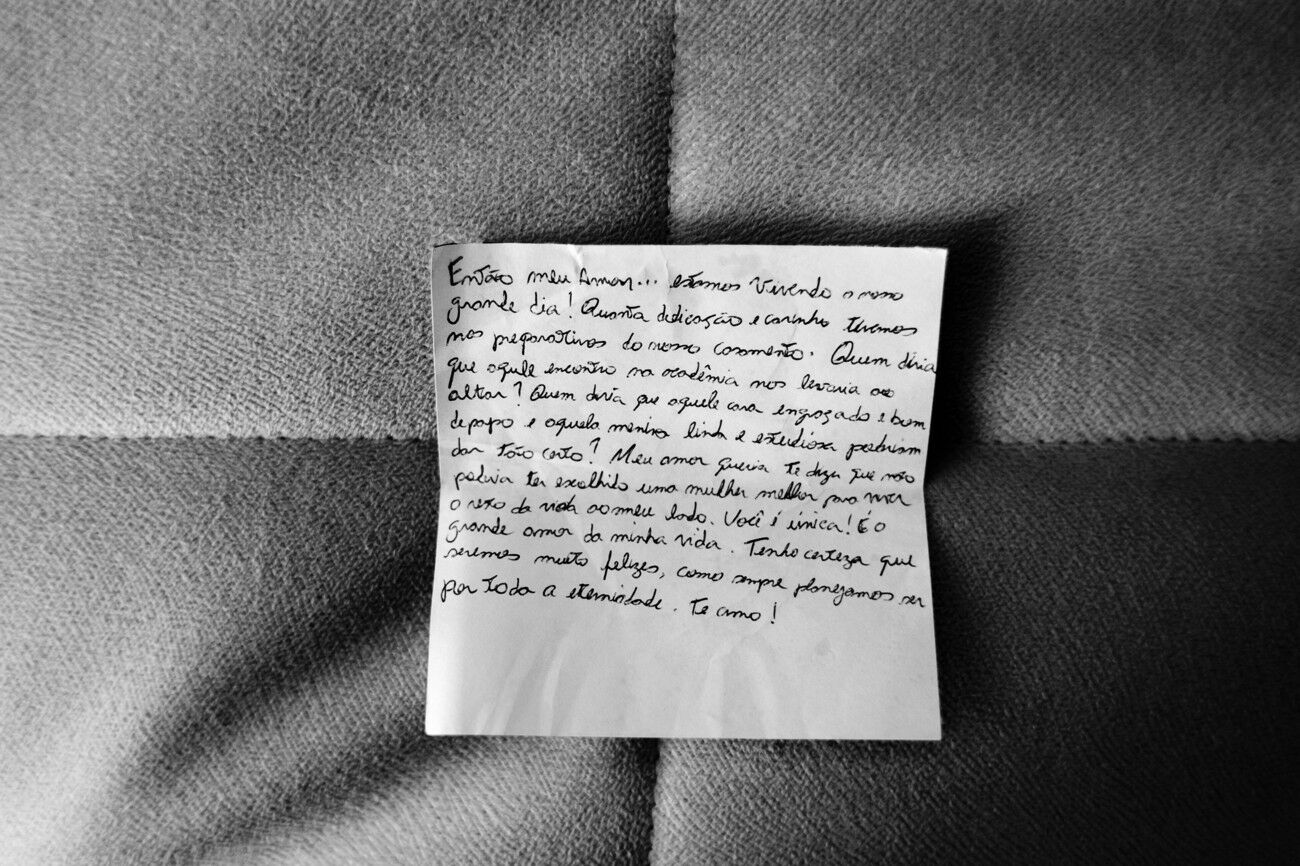 Então meu Amor... estamos Vivendo o nosso
grande dia! Quanta dedicação e carinho tivemos
nos preparativos do nosso casamento. Quem diria
que aquele encontro na academia nos levaria ao
altar? Quem diria que aquele cara engraçado e bom
de papo e aquela menina linda e estudiosa poderiam
dar tão certo? Meu amor queria te dizer que não
poderia ter escolhido uma mulher melhor para viver
o resto da vida ao meu lado. Você é única! É o
grande amor da minha vida. Tenho certeza que
seremos muito felizes, como sempre planejamos ser
por toda a eternidade. Te amo!